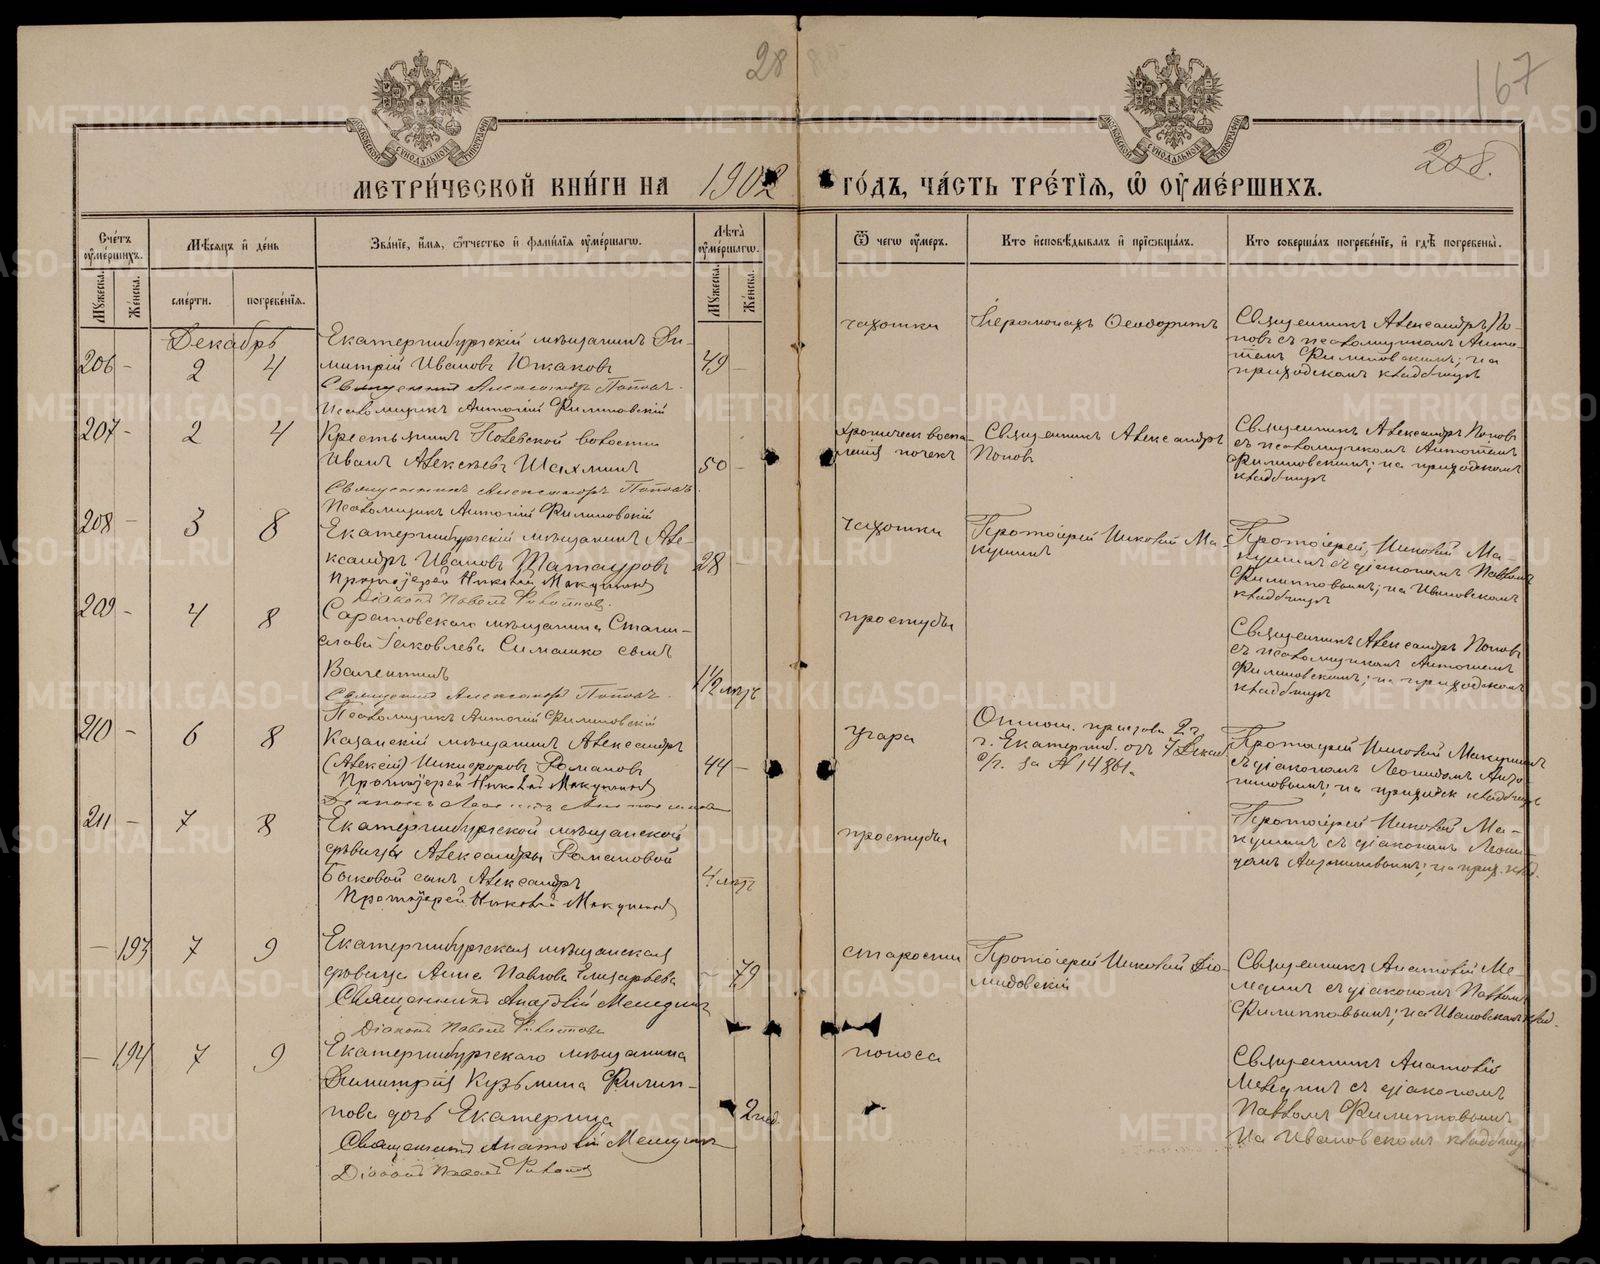 28
167
208.
МОСКОВСКОЙ СѴНОДАЛЬНОЙ ТИПОГРАФІИ
МОСКОВСКОЙ СѴНОДАЛЬНОЙ ТИПОГРАФІИ
МЕТРИ́ЧЕСКОЙ КНИ́ГИ НА 1902 ГО́ДЪ, ЧА́СТЬ ТРЕ́ТІѦ, Ѡ҆ ОУ҆МЕ́РШИХЪ.
Сче́тъ оу҆ме́ршихъ.
Мꙋ́жеска.
Же́нска.
Мѣ́сѧцъ и҆ де́нь
сме́рти.
погребе́нїѧ.
Зва́нїе, и҆́мѧ, ѻ҆́тчество и҆ фами́лїѧ оу҆ме́ршагѡ.
Лѣ̑та оу҆ме́ршагѡ.
Мꙋ́жеска.
Же́нска.
Ѿ чегѡ̀ оу҆́меръ.
Кто̀ и҆сповѣ́дывалъ и҆ прїѡбща́лъ.
Кто̀ соверша́лъ погребе́нїе, и҆ гдѣ̀ погребены̀.
Декабрь
206 -
2
4
Екатеринбургскій мѣщанинъ Ди-
митрій Ивановъ Южаковъ
Священникъ Александръ Поповъ.
Псаломщикъ Антоній Филиповскій
49 -
чахотки
Іеромонахъ Феодоритъ
Священникъ Александръ По-
повъ съ псаломщикомъ Анто-
ніемъ Филиповскимъ; на
приходскомъ кладбищѣ
207 -
2
4
Крестьянинъ волости
Иванъ Алексѣевъ Шахминъ
Священникъ Александръ Поповъ.
Псаломщикъ Антоній Филиповскій
50 -
Хроническ. воспа-
ленія почекъ
Священникъ Александръ
Поповъ
Священникъ Александръ Поповъ
съ псаломщикомъ Антоніемъ
Филиповскимъ; на приходскомъ
кладбищѣ
208 -
3
8
Екатеринбургскій мѣщанинъ Але-
ксандръ Ивановъ Татауровъ
Протоіерей Николай Макушинъ
Діаконъ Павелъ
28 -
чахотки
Протоіерей Николай Ма-
кушинъ
Протоіерей Николай Ма-
кушинъ съ діакономъ Павломъ
Филипповымъ; на Ивановскомъ
кладбищѣ
209 -
4
8
Саратовскаго мѣщанина Стани-
слава Іаковлева Симашко сынъ
Валентинъ
Священникъ Александръ Поповъ.
Псаломщикъ Антоній Филиповскій
1 1/2 лѣтъ
простуды
Священникъ Александръ Поповъ
съ псаломщикомъ Антоніемъ
Филиповскимъ; на приходскомъ
кладбищѣ
210 -
6
8
Казанскій мѣщанинъ Александръ
(Алексѣй) Никифоровъ Романовъ
Протоіерей Николай Макушинъ
Діаконъ Леонидъ
44 -
угара
Отнош. пристава 2 ч.
г. Екатеринб. отъ 7 Декаб.
с/г. за № 14861.
Протоіерей Николай Макушинъ
съ діакономъ Леонидомъ
на приходск. кладбищѣ
211 -
7
8
Екатеринбургской мѣщанской
дѣвицы Александры Романовой
Быковой сынъ Александръ
Протоіерей Николай Макушинъ
4 лѣтъ
простуды
Протоіерей Николай Ма-
кушинъ съ діакономъ Леони-
домъ на прих. клад.
- 193
7
9
Екатеринбургская мѣщанская
дѣвица Анна Павлова Елизарьева
Священникъ Анатолій Меледин
Діаконъ Павелъ
- 79
старости
Протоіерей Николай Дio-
мидовскій
Священникъ Анатолій Ме-
лединъ съ діакономъ Павломъ
Филипповымъ; на Ивановскомъ клад.
- 194
7
9
Екатеринбургскаго мѣщанина
Димитрія Кузьмина Филип-
пова дочь Екатерина
Священникъ Анатолій Меледин
Діаконъ Павелъ
2 нед.
поноса
Священникъ Анатолій
Мелединъ съ діакономъ
Павломъ Филипповымъ
На Ивановскомъ кладбищѣ
METRIKI.GASO-URAL.RU